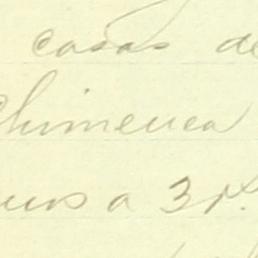 casas de
Chimenea
a 31.